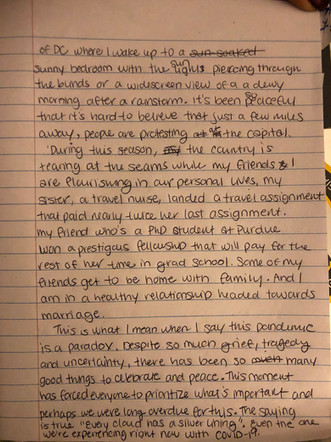 of DC where I wake up to a sun-soaked
sunny bedroom with the sun lights piercing through
the blinds or a widescreen view of a a dewy
morning after a rainstorm. It's been so peaceful
that it's hard to believe that just a few miles
away, people are protesting at the capital.
During this season, the country is
tearing at the seams while my friends & I
are flourishing in our personal lives, my
sister, a travel nurse, landed a travel assignment
that paid nearly twice her last assignment.
my friend who's a PhD student at Purdue
won a prestigous fellowship that will pay for the
rest of her time in grad school. Some of my
friends get to be home with family. And I
am in a healthy relationship headed towards
marriage.
This is what I mean when I say this pandemic
is a paradox. Despite so much grief, tragedy
and uncertainty, there has been so much many
good things to celebrate and peace. This moment
has faced everyone to prioritize what's important and
perhaps we were long overdue for this. The saying
is true "Every cloud has a silver lining". Even the one
we're experiencing right now with COVID-19.